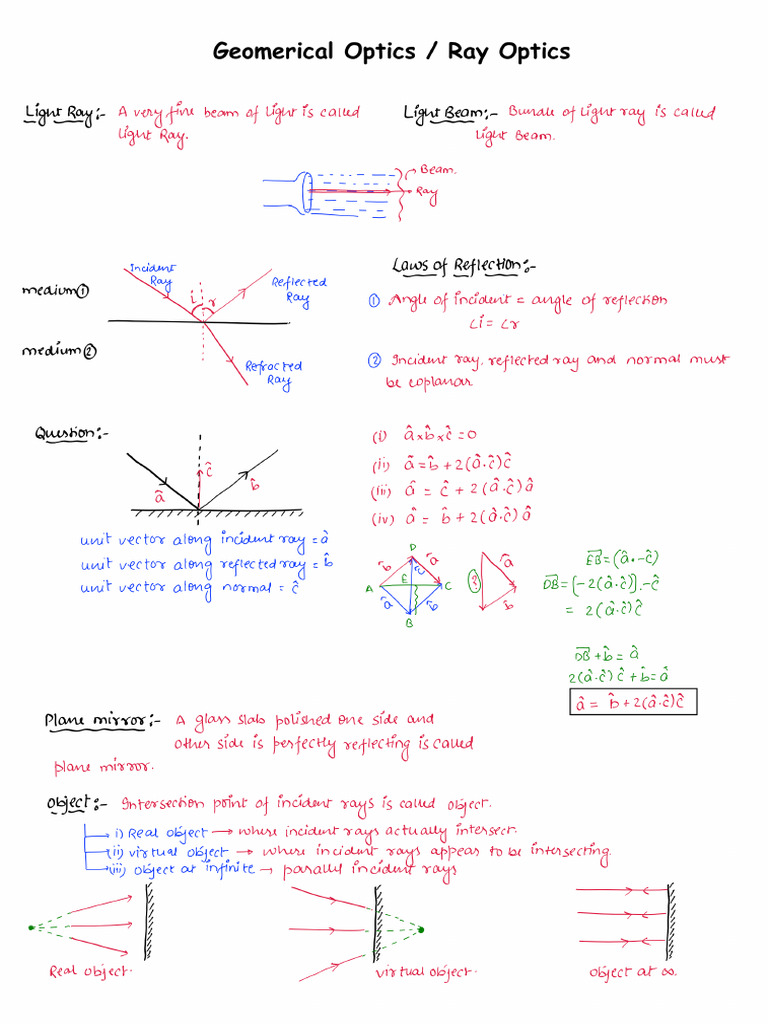 Geomerical Optics / Ray Optics
Light Ray:- A very fine beam of light is called
Light Ray.
Light Beam:- Bundle of light ray is called
Light Beam.
Beam.
Ray
Incident
Ray
Reflected
Ray
medium①
i
r
medium②
Refracted
Ray
Laws of Reflection:-
① Angle of incident = angle of reflection
∠i = ∠r
② Incident ray, reflected ray and normal must
be coplanar.
Question:-
â
ĉ
b̂
unit vector along incident ray = â
unit vector along reflected ray = b̂
unit vector along normal = ĉ
(i) â×b̂×ĉ = 0
(ii) â = b̂ + 2(â·ĉ)ĉ
(iii) â = ĉ + 2(â·ĉ)â
(iv) â = b̂ + 2(â·ĉ)â
D
b̂
â
A
E
ĉ
C
â
b̂
B
?
â
b̂
EB = (â·-ĉ)
DB = [-2(â·ĉ)].-ĉ
= 2(â·ĉ)ĉ
DB + b̂ = â
2(â·ĉ)ĉ + b̂ = â
â = b̂ + 2(â·ĉ)ĉ
Plane mirror:- A glass slab polished one side and
other side is perfectly reflecting is called
plane mirror.
Object:- Intersection point of incident rays is called object.
i) Real object → where incident rays actually intersect.
(ii) virtual object → where incident rays appear to be intersecting.
(iii) object at infinite → parallel incident rays
Real object.
virtual object.
object at ∞.